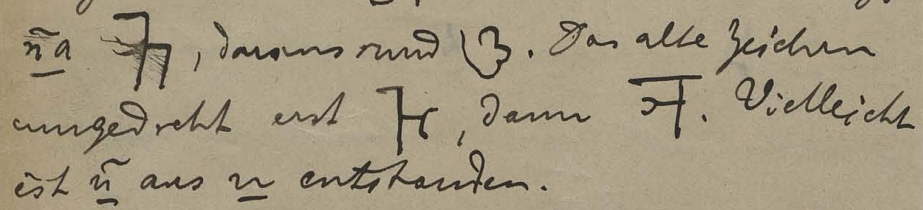 ña , daraus rund . Das alte Zeichen
umgedreht erst , dann . Vielleicht
ist ñ aus n entstanden.